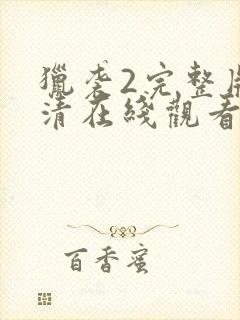 獵袭2完整
清在綫觀看
百香蜜